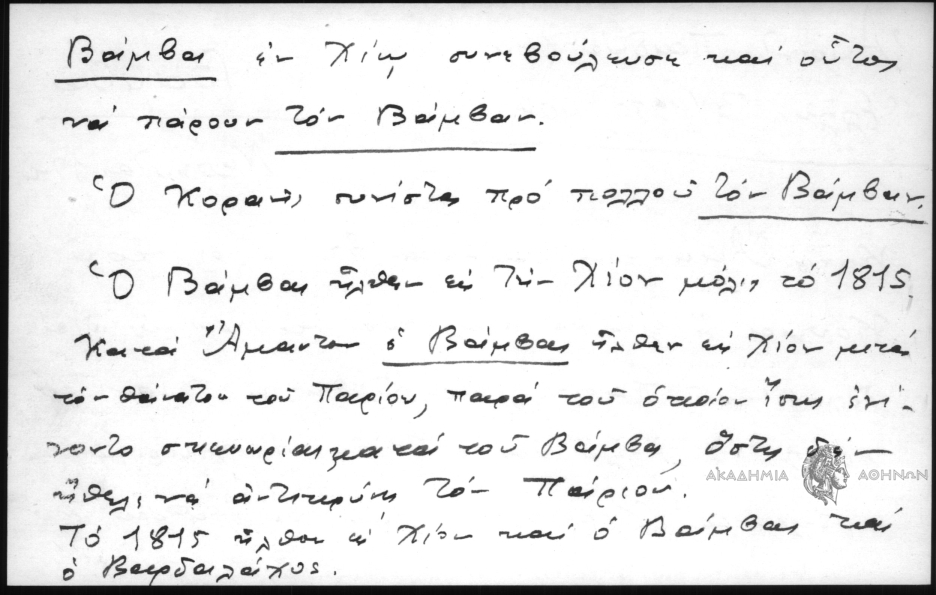 Βάμβας ἐν Χίῳ συνεβούλευσε καί οὗτος
νά πάρουν τόν Βάμβαν.
Ὁ Κοραῆς συνίστα πρό πολλοῦ τόν Βάμβαν.
Ὁ Βάμβας ἦλθεν εἰς τήν Χίον μόλις τό 1815,
Κατά Ἄμαντον ὁ Βάμβας ἦλθεν εἰς Χίον μετά
τόν θάνατον τοῦ Παρίου, παρά τοῦ ὁποίου ἴσως ἐγί-
νοντο σκευωρίαι κατά τοῦ Βάμβα, ὅστις δέν
ἤθελε νά ἀντικρύσῃ τόν Πάριον.
Τό 1815 ἦλθον εἰς Χίον καί ὁ Βάμβας καί
ὁ Βαρδαλάχος.
ΑΚΑΔΗΜΙΑ ΑΘΗΝΩΝ